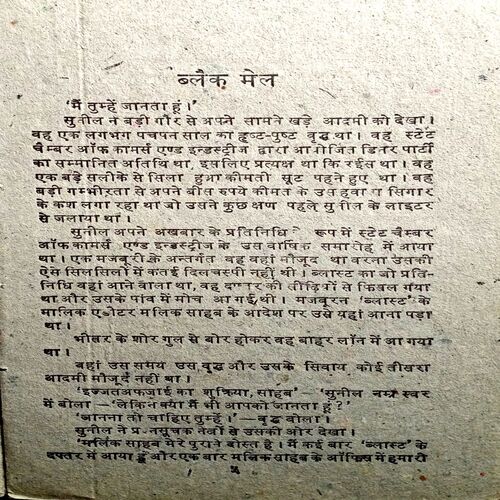 ब्लैक मेल
'मैं तुम्हें जानता हूं।'
सुनील ने बड़ी गौर से अपने सामने खड़े आदमी को देखा।
वह एक लगभग पचपन साल का हृष्ट-पुष्ट वृद्ध था। वह स्टेट
चैम्बर ऑफ कामर्स एण्ड इन्डस्ट्रीज द्वारा आयोजित डिनर पार्टी
का सम्मानित अतिथि था, इसलिए प्रत्यक्ष था कि रईस था। वह
एक बड़े सलीके से सिला हुआ कीमती सूट पहने हुए था। वह
बड़ी गम्भीरता से अपने बीस रुपये कीमत के उस हवाना सिगार
के कश लगा रहा था जो उसने कुछ क्षण पहले सुनील के लाइटर
से जलाया था।
सुनील अपने अखबार के प्रतिनिधि रूप में स्टेट चैम्बर
ऑफ कामर्स एण्ड इन्डस्ट्रीज के उस वार्षिक समारोह में आया
था। एक मजबूरी के अन्तर्गत वह वहां मौजूद था वरना उसकी
ऐसे सिलसिलों में कतई दिलचस्पी नहीं थी। ब्लास्ट का जो प्रति-
निधि वहां आने वाला था, वह दफ्तर की सीढ़ियों से फिसल गया
था और उसके पांव में मोच आ गई थी। मजबूरन 'ब्लास्ट' के
मालिक एडीटर मलिक साहब के आदेश पर उसे यहां आना पड़ा
था।
भीतर के शोर गुल से बोर होकर वह बाहर लॉन में आ गया
था।
वहां उस समय उस वृद्ध और उसके सिवाय कोई तीसरा
आदमी मौजूद नहीं था।
'इज्जतअफजाई का शुक्रिया, साहब' — 'सुनील नम्र स्वर
में बोला — 'लेकिन क्या मैं भी आपको जानता हूं?'
'जानना तो चाहिए तुम्हें।' — वृद्ध बोला।
सुनील ने प्रश्नसूचक नेत्रों से उसकी ओर देखा।
'मलिक साहब मेरे पुराने दोस्त हैं। मैं कई बार 'ब्लास्ट' के
दफ्तर में आया हूं और एक बार मलिक साहब के ऑफिस में हमारी